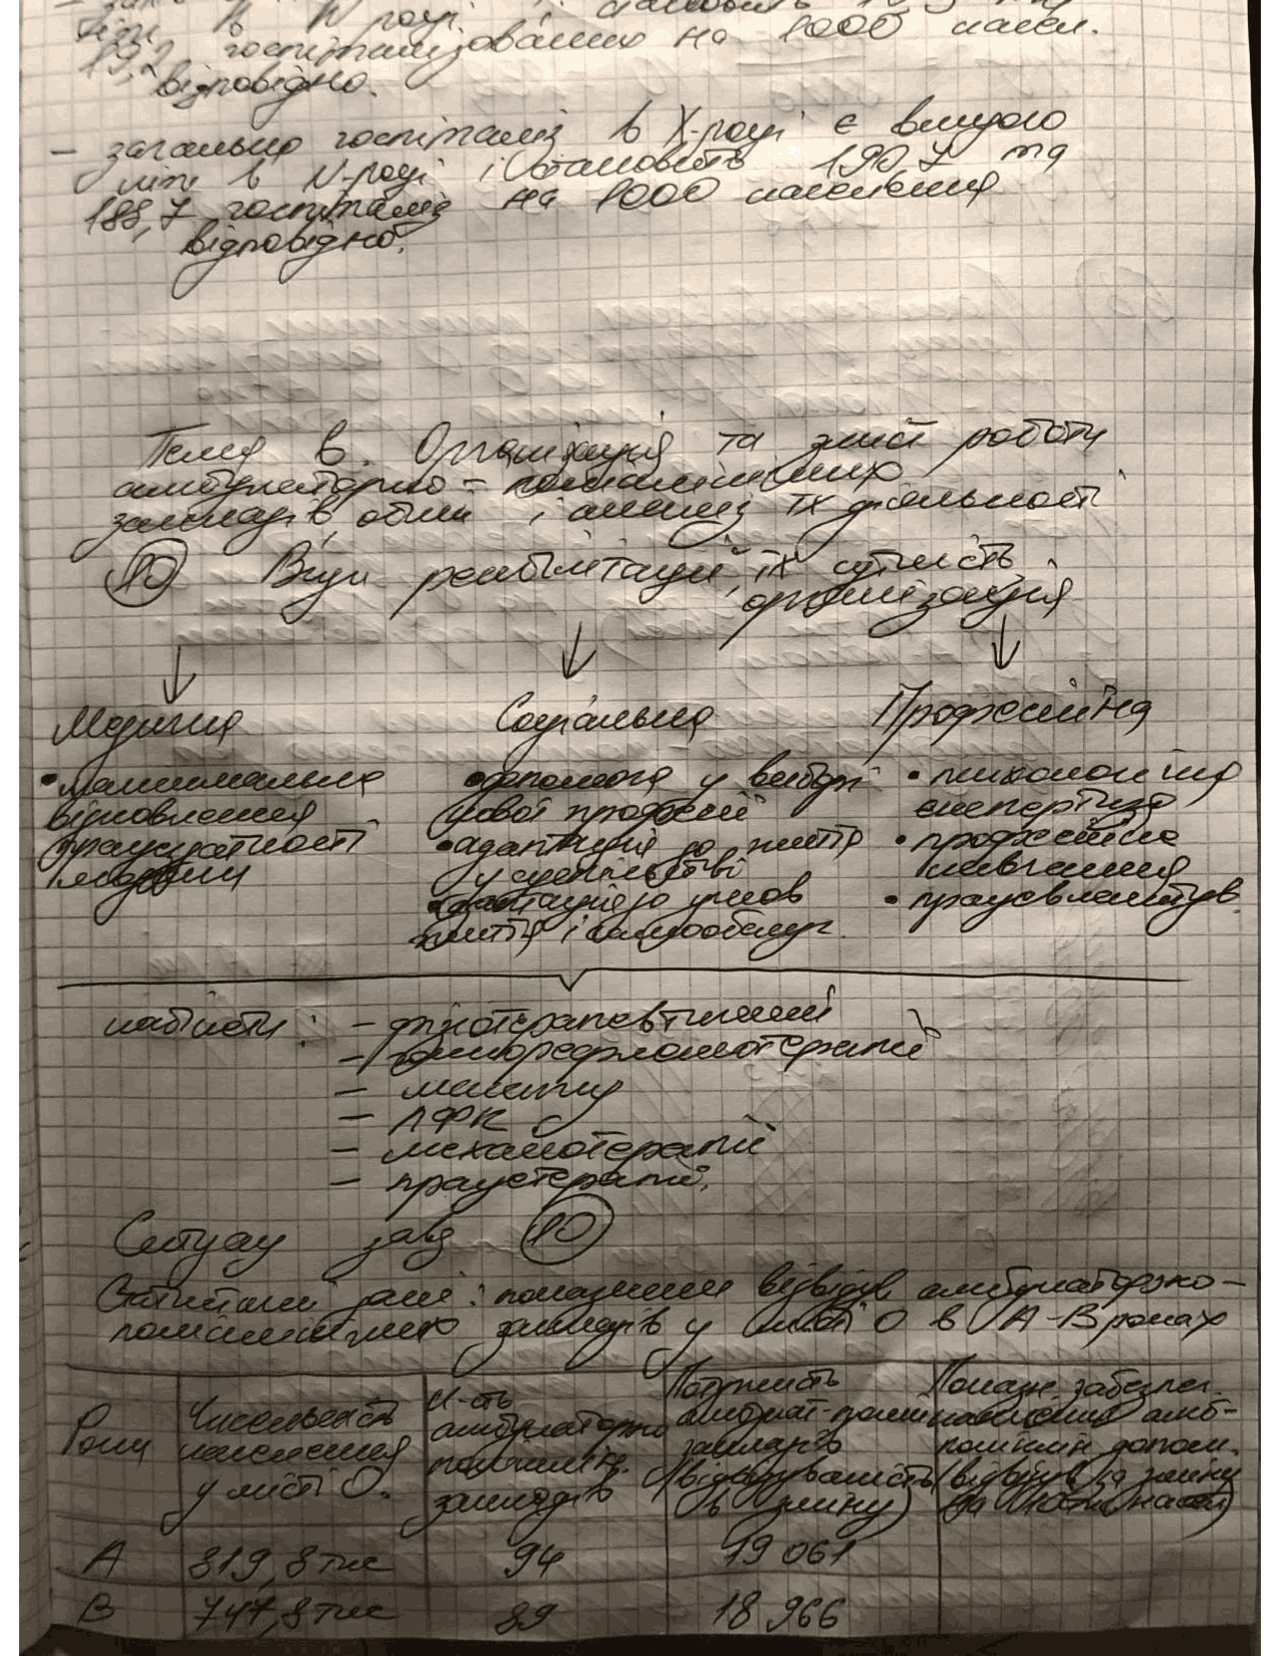 ніж в N році і становить
19,2 госпіталізованих на 1000 насел.
відповідно.
– загально госпіталіз в X-році є вищою
ніж в N-році і становить 190,7 та
188,7 госпіталіз на 1000 населення
відповідно.
Тема 6. Організація та зміст роботи
амбулаторно – поліклінічних
закладів, облік і аналіз їх діяльності
10 Види реабілітації, їх сутність,
організація
Медична Соціальна Професійна
• максимальне відновлення працездатності людини
• допомога у виборі нової професії
• адаптація до життя у суспільстві
• адаптація до умов життя і самообслуг.
• психологічна експертиза
• професійне навчання
• працевлаштув.
кабінети: – фізіотерапевтичний
– голкорефлексотерапії
– масажу
– ЛФК
– механотерапії
– працетерапії.
Ситуац зад 10
Статистичні дані: показники відвідув амбулаторно –
поліклінічних закладів у місті О в А-В роках
Роки | Чисельність населення у місті О. | К-сть амбулаторно поліклініч. закладів | Потужність амбулат-полікл закладів (відвідуваність в зміну) | Показн. забезпеч. населення амб-поліклін допом. (відвідув за зміну на 10 тис насел)
А 819,8 тис 94 19 061
В 747,8 тис 89 18 966